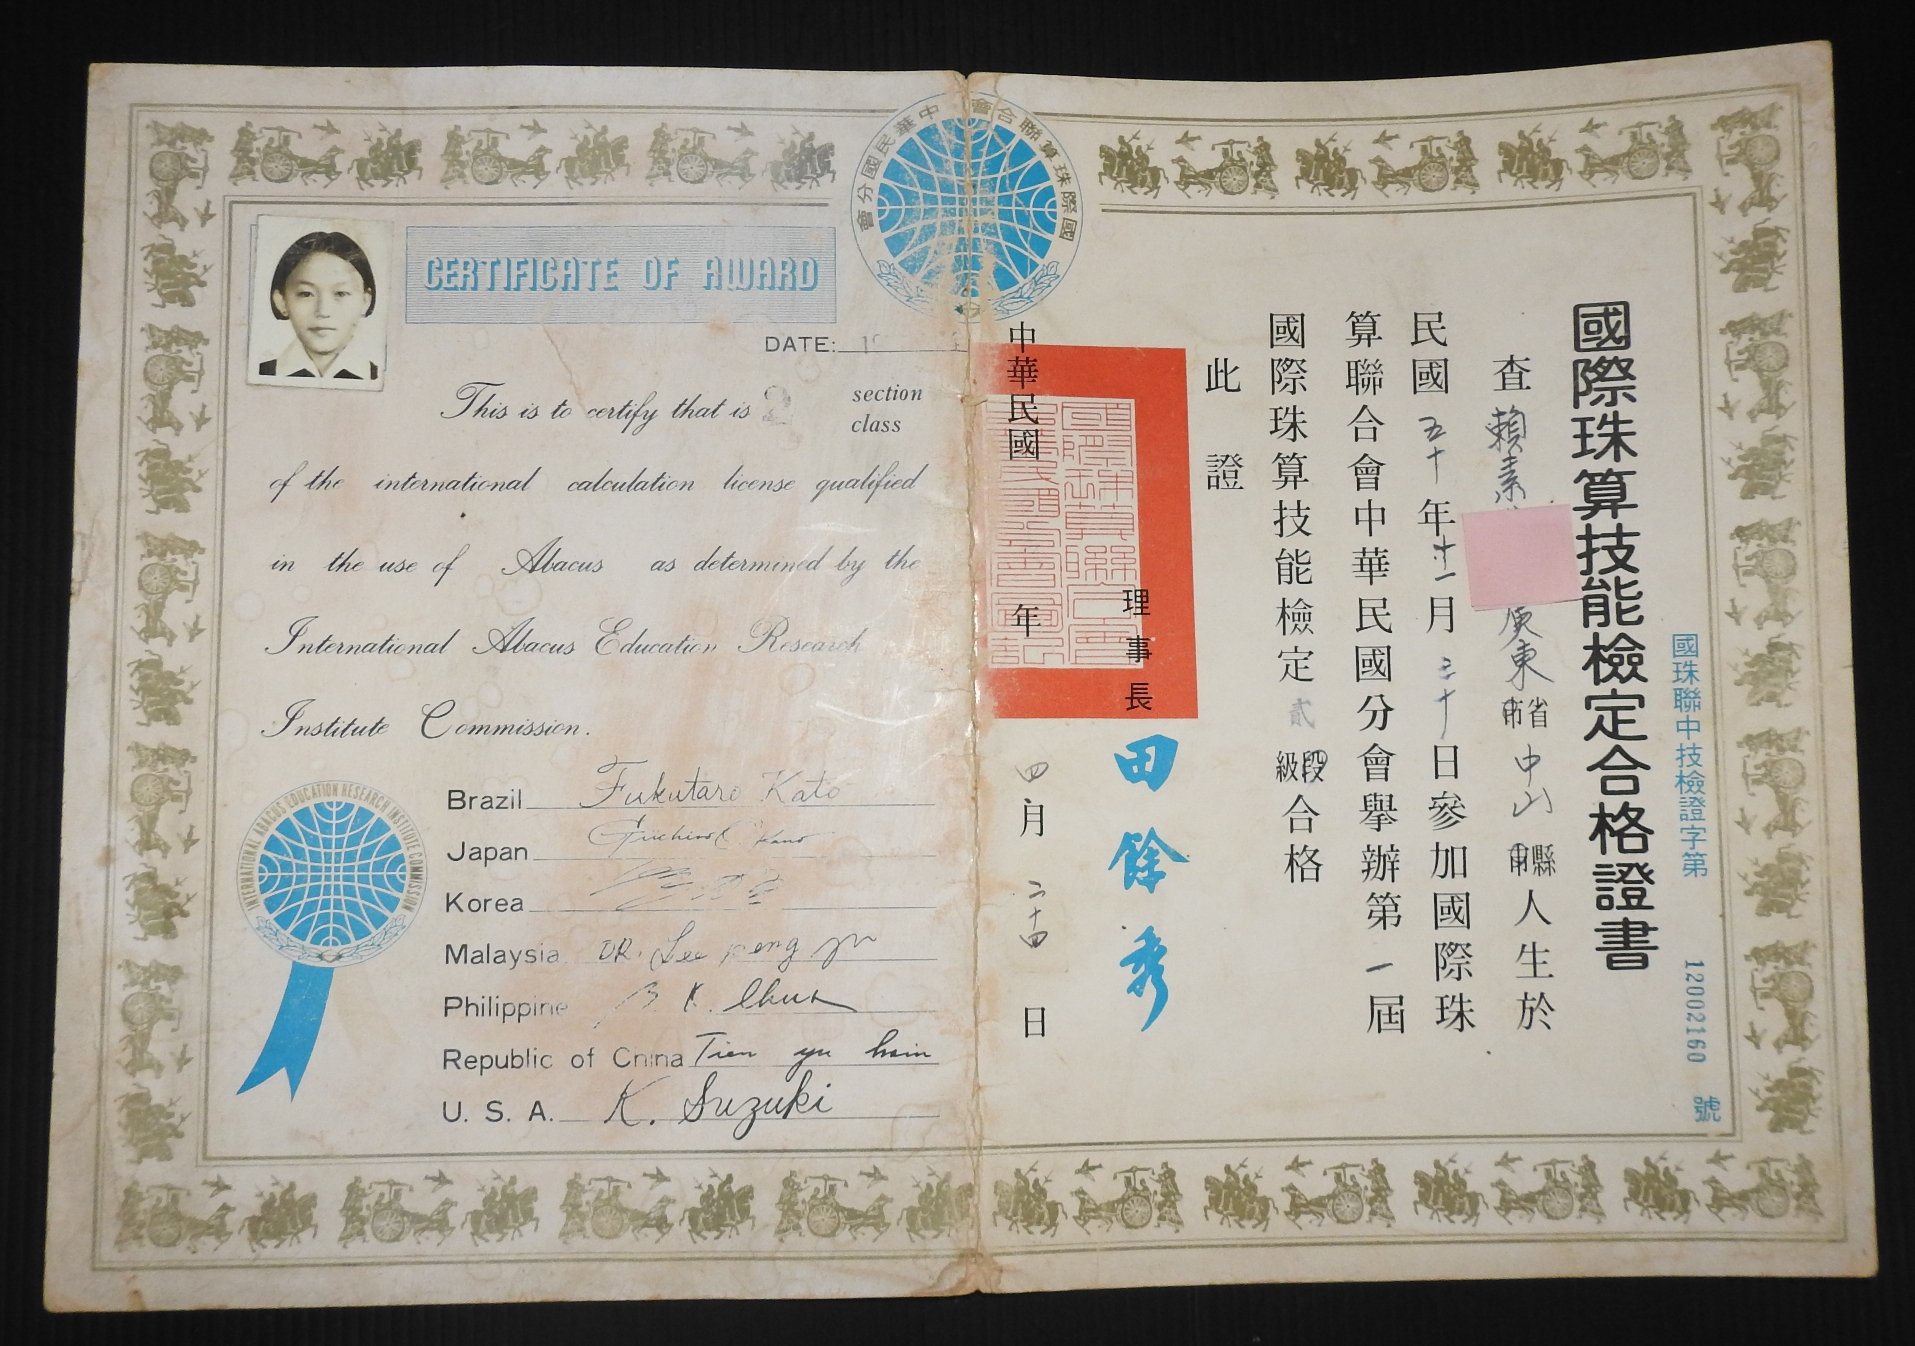 中華民國分會
國際珠算聯合會
CERTIFICATE OF AWARD
DATE:
This is to certify that is 2 section class
of the international calculation license qualified
in the use of Abacus as determined by the
International Abacus Education Research
Institute Commission.
INTERNATIONAL ABACUS EDUCATION RESEARCH INSTITUTE COMMISSION
Brazil Fukutaro Kato
Japan
Korea
Malaysia DR. Lee peng
Philippine
Republic of China Tien yu hsin
U. S. A. K. Suzuki
國珠聯中技檢證字第 12002160 號
國際珠算技能檢定合格證書
查賴素 廣東省市中山縣市人生於
民國五十年十一月三十日參加國際珠
算聯合會中華民國分會舉辦第一屆
國際珠算技能檢定貳段級合格
此證
理事長 田餘秀
中華民國 年四月二十四日